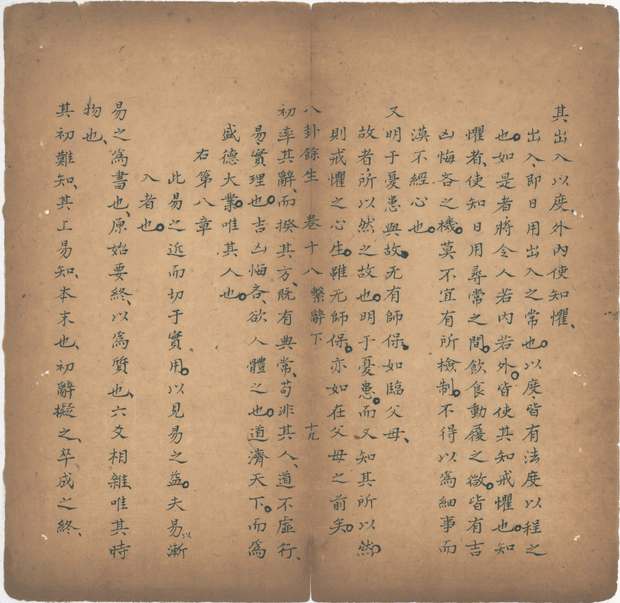 其出入以度、外內使知懼、
出入、即日用出入之常也。以度、皆有法度以程之
也。如是者、將令人若內若外。皆使其知戒懼也。知
懼者、使知日用尋常之間。飲食動履之微。皆有吉
凶悔吝之機。莫不宜有所檢制。不得以為細事而
漠不經心也。
又明于憂患與故、无有師保、如臨父母、
故者、所以然之故也。明于憂患。而又知其所以然。
則戒懼之心生。雖无師保。亦如在父母之前矣。
八卦餘生 卷十八 繫辭下 十九
初率其辭、而揆其方、既有典常、苟非其人、道不虛行、
易、實理也。吉凶悔吝、欲人體之也。道濟天下。而為
盛德大業。唯其人也。
右第八章
此易之近而切于實用。以見易之益。夫易、以漸
入者也。
易之為書也、原始要終、以為質也、六爻相雜、唯其時
物也、
其初難知、其上易知、本末也、初辭擬之、卒成之終、